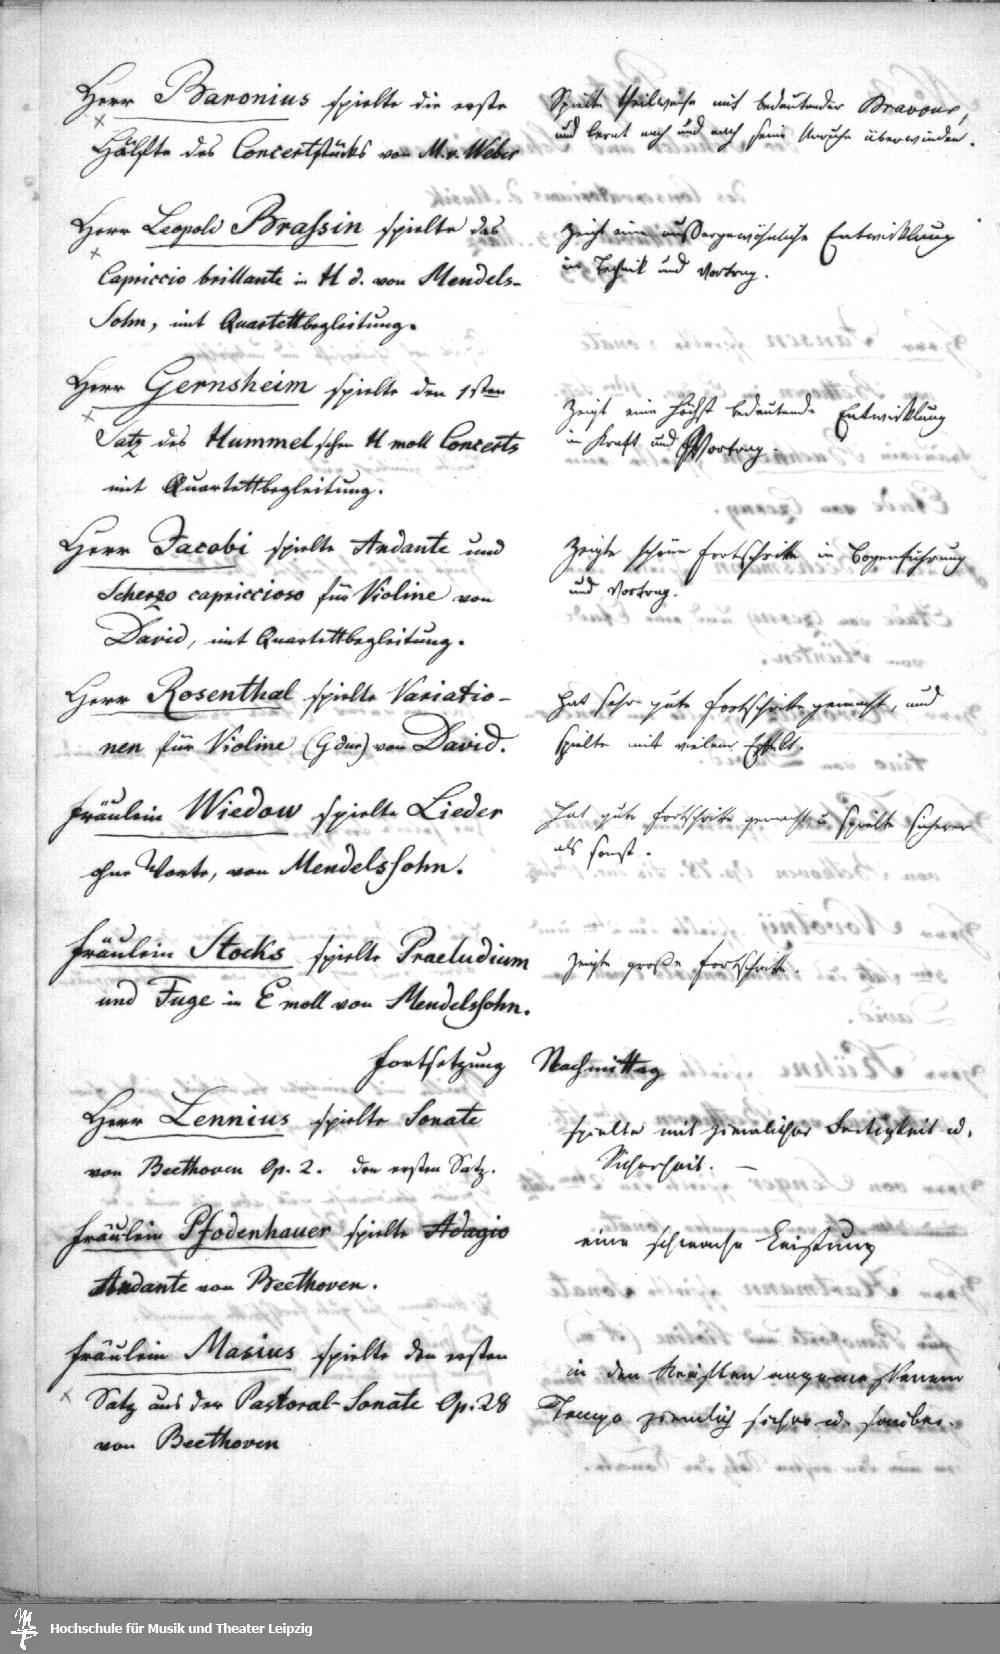 Herr Baronius spielte die erste
Hälfte des Concertstücks von M. v. Weber
Spielte theilweise mit bedeutender Bravour,
und lernt nach und nach seine Unruhe überwinden.
Herr Leopold Brassin spielte das
Capriccio brillante in H d. von Mendels-
sohn, mit Quartettbegleitung.
Zeigt eine außergewöhnliche Entwicklung
in Technik und Vortrag.
Herr Gernsheim spielte den 1sten
Satz des Hummelschen H moll Concerts
mit Quartettbegleitung.
Zeigt eine höchst bedeutende Entwicklung
in Kraft und Vortrag.
Herr Jacobi spielte Andante und
Scherzo capriccioso für Violine von
David, mit Quartettbegleitung.
Zeigte schöne Fortschritte in Bogenführung
und Vortrag.
Herr Rosenthal spielte Variatio-
nen für Violine (G dur) von David.
Hat sehr gute Fortschritte gemacht, und
spielte mit vielem Effekt.
Fräulein Wiedow spielte Lieder
ohne Worte, von Mendelssohn.
Hat gute Fortschritte gemacht u. spielte sicherer
als sonst.
Fräulein Stocks spielte Praeludium
und Fuge in E moll von Mendelssohn.
Zeigte große Fortschritte.
Fortsetzung Nachmittag
Herr Lennius spielte Sonate
von Beethoven Op. 2. den ersten Satz.
spielte mit ziemlicher Fertigkeit u.
Sicherheit. —
Fräulein Pfodenhauer spielte Adagio
Andante von Beethoven.
eine schwache Leistung
Fräulein Masius spielte den ersten
Satz aus der Pastoral-Sonate Op. 28
von Beethoven
in den Kräften angemessenem
Tempo ziemlich sicher u. sauber.
Hochschule für Musik und Theater Leipzig